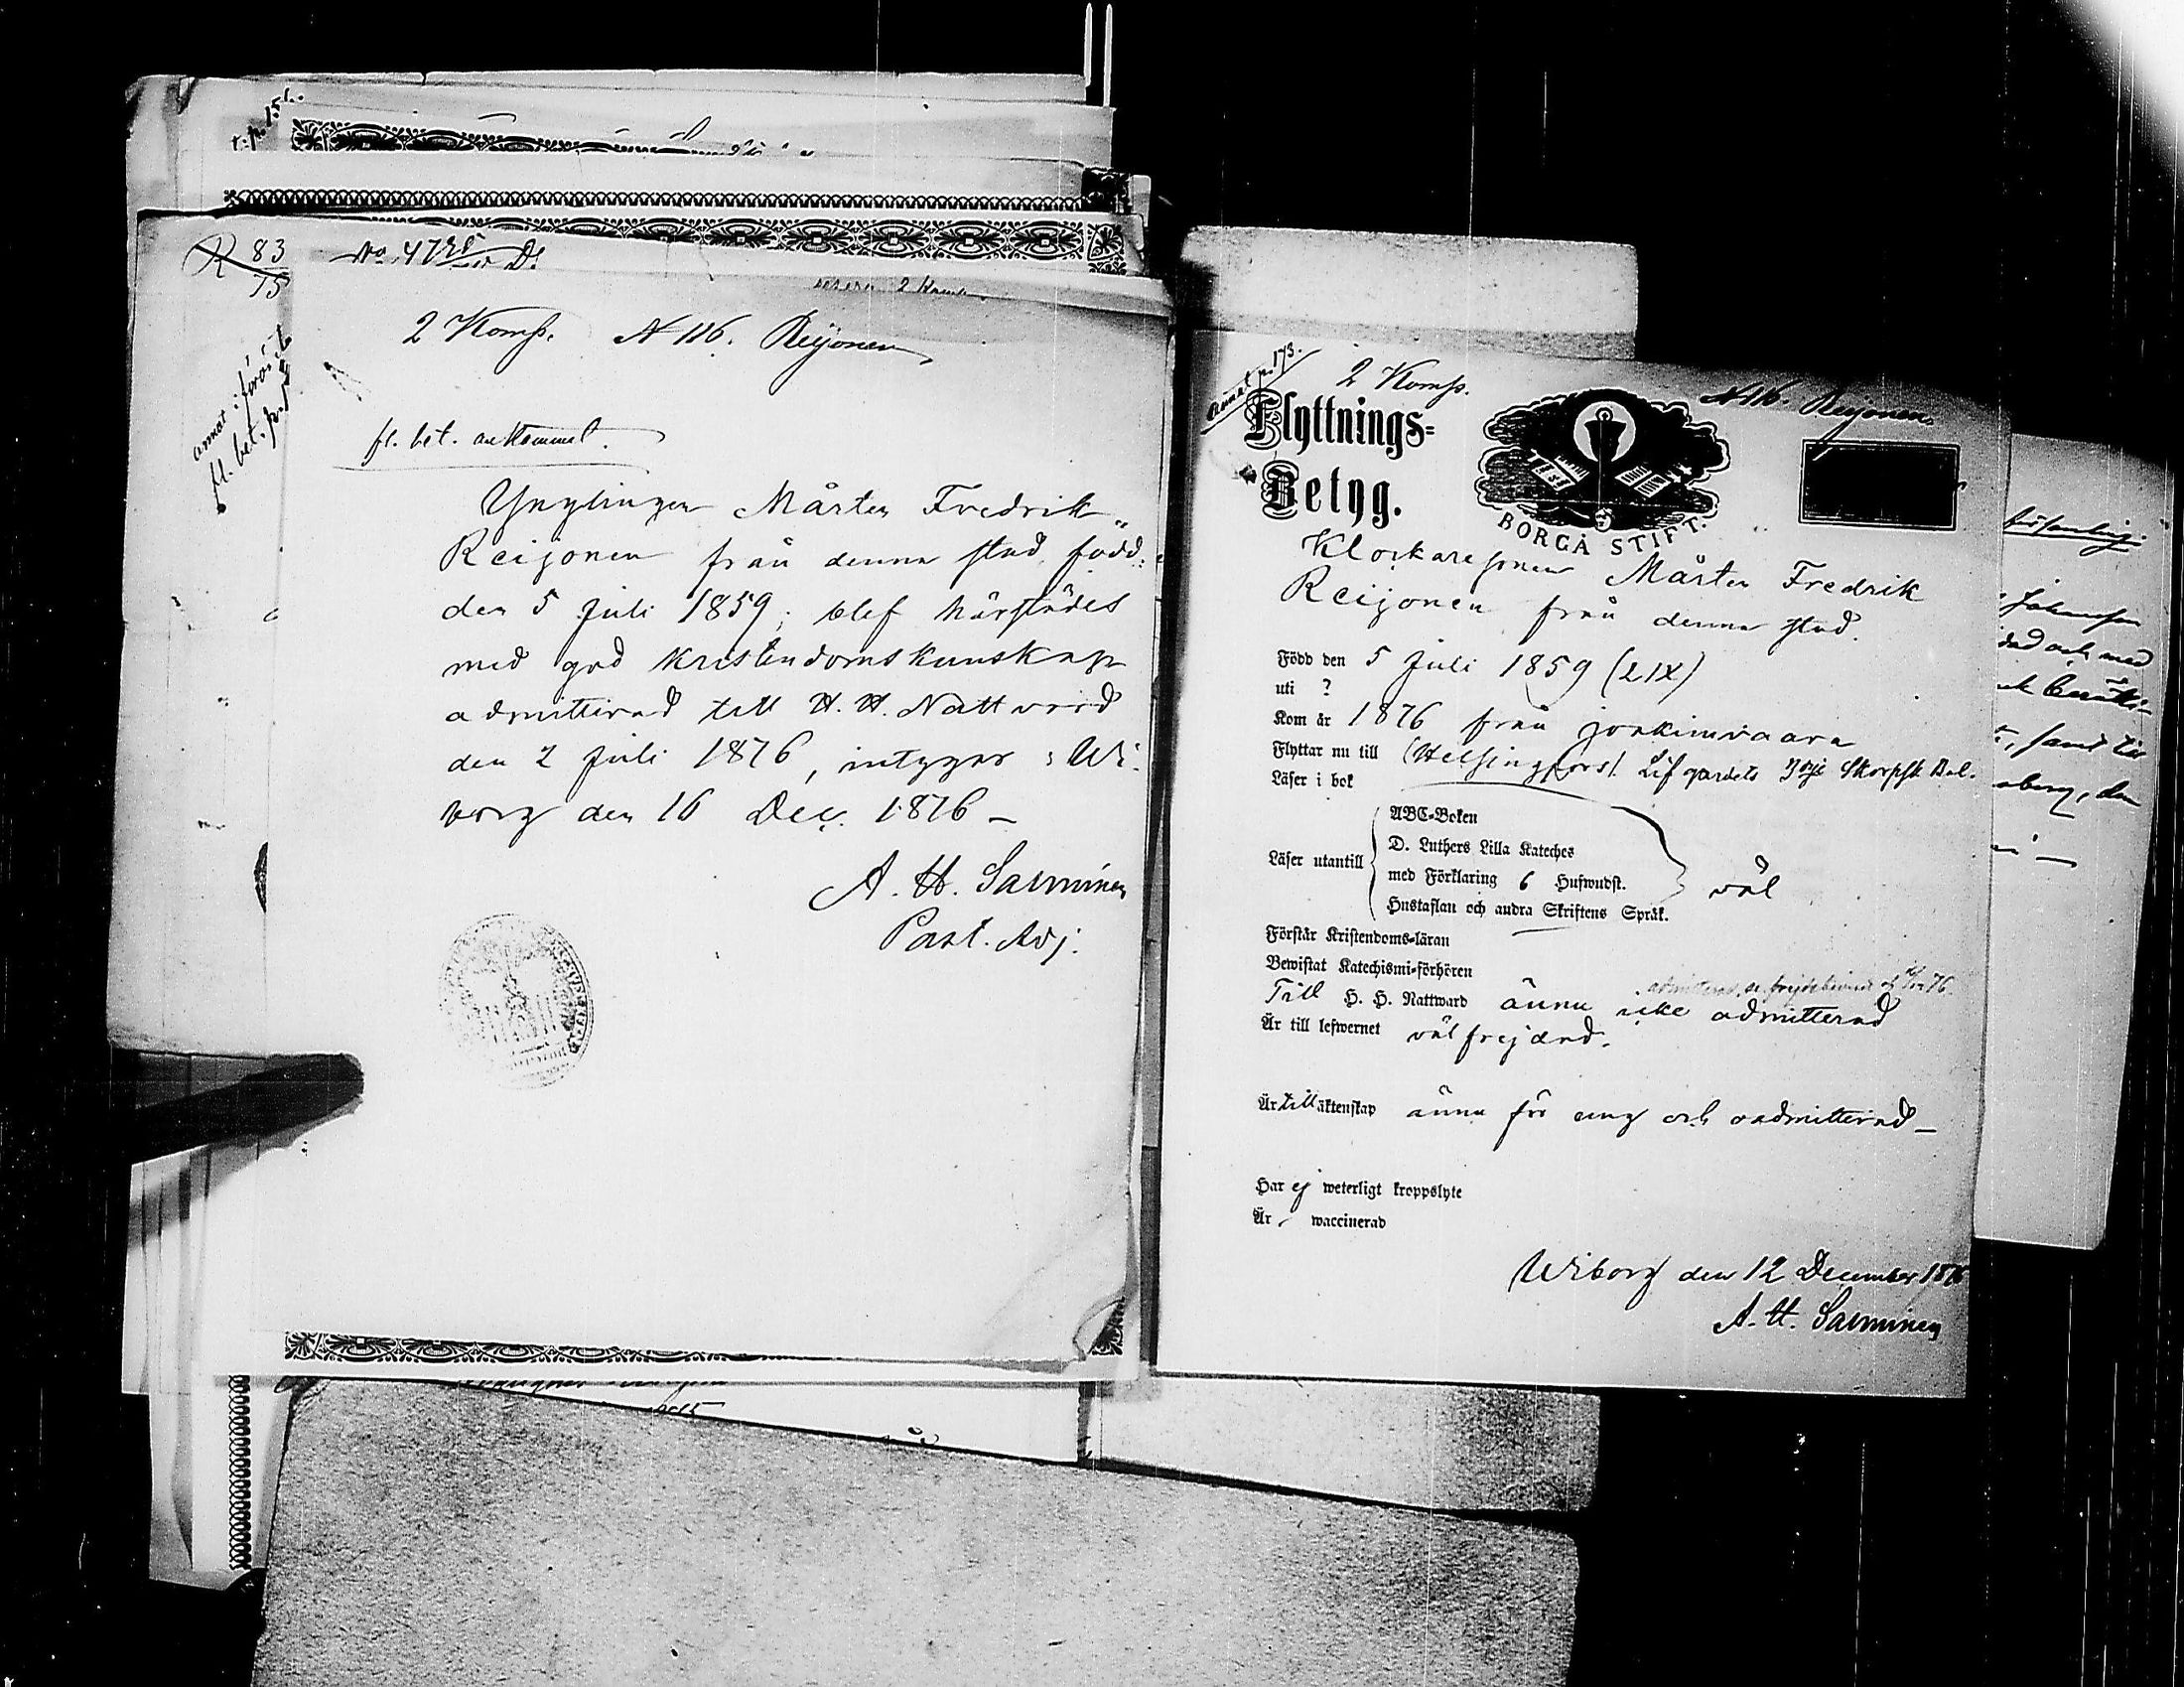 R 83
75
2 Komp. N 116. Reijonen
fl. bet. ankommet.
annat
fl. bet.
Ynglingen Mårten Fredrik
Reijonen från denna stad, född
den 5 Juli 1859, blef härstädes
med god kristendomskunskap
admitterad till H. H. Nattvard
den 2 Juli 1876, intygar; Wi-
borg den 16 Dec. 1876 —
A. H. Sarminen
Past. Adj.
p. 173.
2 Komp. N 116. Reijonen
Flyttnings=
Betyg.
BORGÅ STIFT.
Klockaresonen Mårten Fredrik
Reijonen från denna stad.
Född den 5 Juli 1859 (LIX)
uti ?
Kom år 1876 från Joakimvaara
Flyttar nu till (Helsingfors) Lifgardets 3dje Skarpsk. Bat.
Läser i bok
Läser utantill
ABC=Boken
D. Luthers Lilla Kateches
med Förklaring 6 Hufwudst.
Hustaflan och andra Skriftens Språk.
väl
Förstår Kristendoms=läran
Bewistat Katechismi=förhören
admitterad, se frejdebeviset af 16/12 76.
Till H. H. Nattward ännu icke admitterad
Är till lefwernet väl frejdad.
Är till äktenskap ännu för ung och oadmitterad —
Har ej weterligt kroppslyte
Är waccinerad
Wiborg den 12 December 1876
A. H. Sarminen